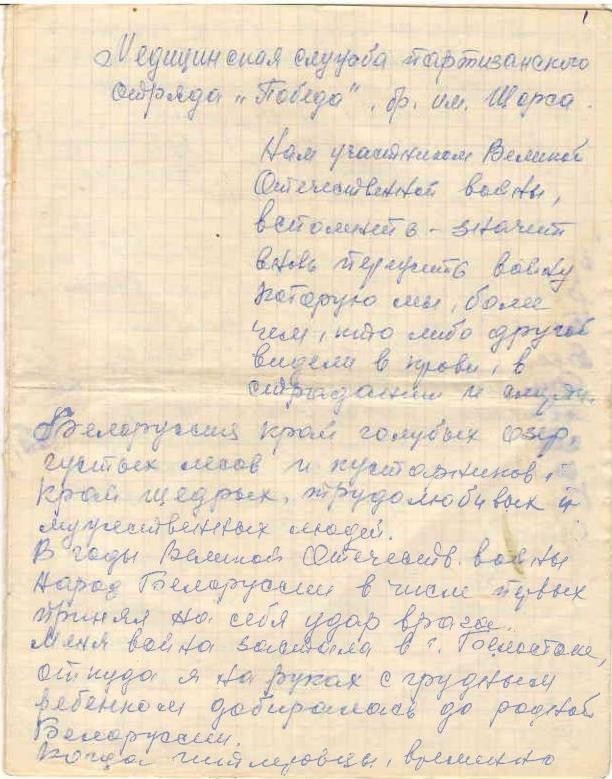 1
Медицинская служба партизанского
отряда „Победа", бр. им. Щорса.
Нам участникам Великой
Отечественной войны,
вспомнить - значит
вновь пережить войну
которую мы, более
чем, кто либо другой
видели в крови, в
страдании и
Белоруссия край голубых озер,
густых лесов и кустарников,
край щедрых, трудолюбивых и
мужественных людей.
В годы Великой Отечеств. войны
народ Белоруссии в числе первых
принял на себя удар врага.
Меня война застала в г. Белостоке,
откуда я на руках с грудным
ребенком добиралась до родной
Белоруссии.
Когда гитлеровцы, временно